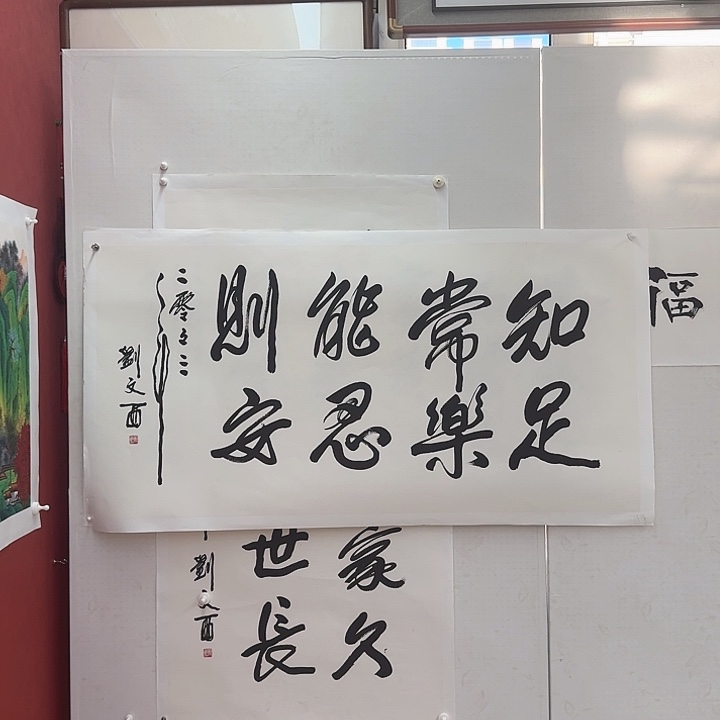 福
知足
常樂
能忍
則安
二零二三
年
劉文酉
家久
世長
劉文酉